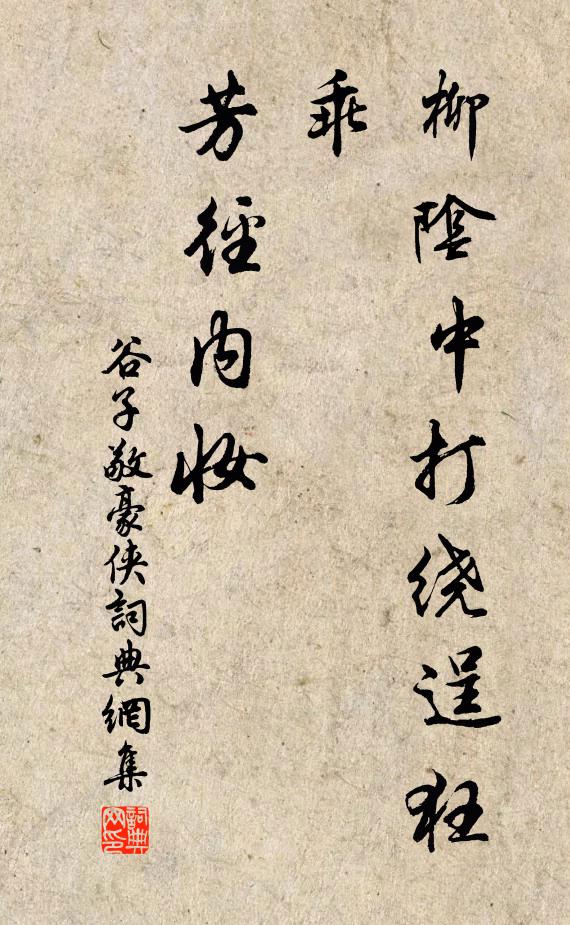 柳陰中打绕逞狂
乖
芳徑内妝
谷子敬豪俠詞典網集
詞典
网印